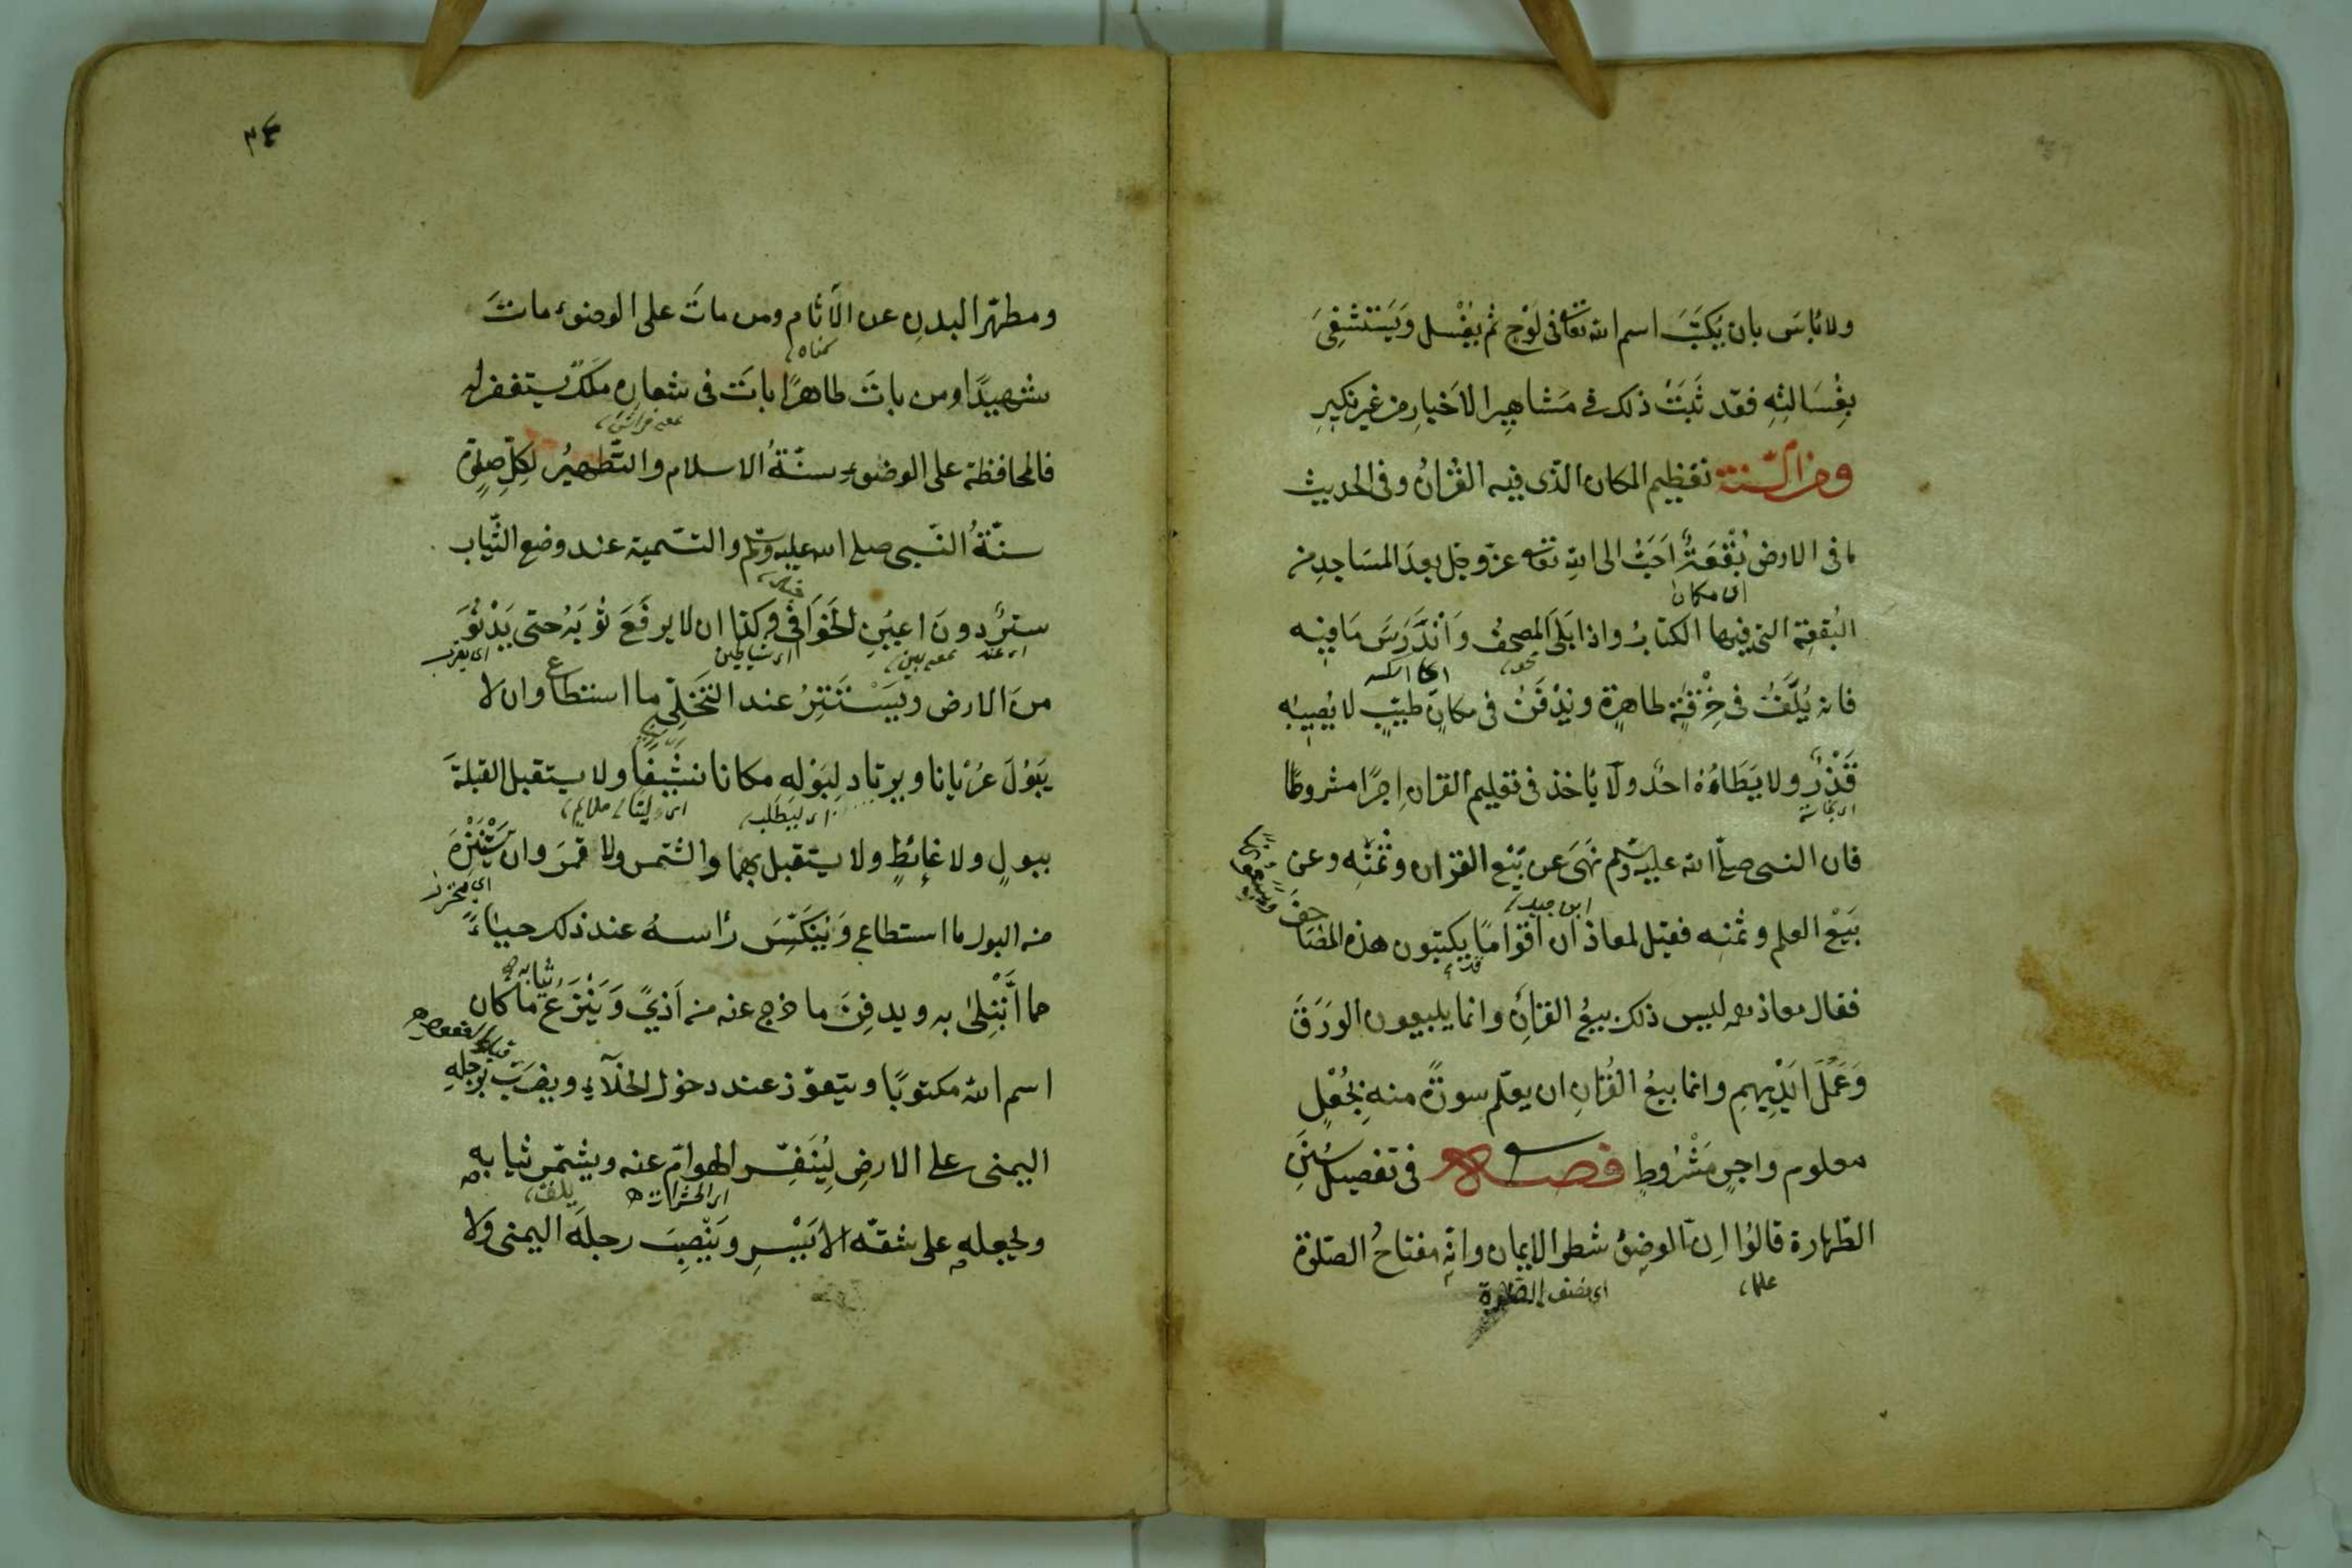 ولا بأس بان يكتَبَ اسم الله تعالى فى لَوْحٍ ثم يغْسل ويَسْتَشْفِىَ
بِغُسَالتِهِ فقد ثَبَتَ ذلك فى مَشاهِيرِ الاَخيارِ من غير نكيرٍ
ومن السّنة تعظيم المكان الّذى فيه القُرْانُ وفى الحديث
ما فى الارض بُقْعَةٌ اَحَبُّ الى الله تعالى عزّ وجل بعدَ المسَاجدِ من
اى مكان
البُقعة التى فيها الكتابُ واذا بَلَى المصحفُ وَانْدَرَسَ مَا فيِهِ
فانه يُلَفُّ فى خِرْقَةٍ طاهرةٍ ويُدْفَنُ فى مكانٍ طيّبٍ لا يُصيبُه
قَذْرٌ ولا يَطَاؤُهُ احدٌ ولا يأخذ فى تعليم القران اجرًا مشروطًا
اى نجاسة
فان النبى صلى الله عليه وسلم نَهَى عن بَيْع القران وثمَنِه وعن
ابن جبل
بَيْع العلم وثمنِه فقيل لمعاذ ان اقوامًا يكتبون هذه المصَاحفَ
ويبيعونها
فقال معاذ ليس ذلك بيعُ القرانِ وانما يبيعون الوَرَقَ
وَعَمَلَ ايْدِيهِمِ وانما بيعُ القُرانِ ان يعلّم سورةً منه بِجُعْلٍ
معلوم واجرٍ مَشْروطٍ فصل فى تفصيل سُنَنِ
الطّهارة قالوُا اِنّ الوضؤَ شطر الايمان وانّه مفتاحُ الصّلوة
علما اى نصف الصلوة
٣٤
ومطهّر البدنِ عن الآثام ومن ماتَ على الوضوء ماتَ
كناه
شهيدًا ومن باتَ طاهرًا باتَ فى شعارِهِ مَلَكٌ يستغفر له
فالمحافظة على الوضوءِ سنّةُ الاسلام والتّطهيرُ لكلِّ صلوةٍ
سنّةُ النّبى صلى الله عليه وسلم والتّسمية عند وضع الثّياب
سترٌ دونَ اعيُنِ الخَوَافى وكذا ان لا يرفَعَ ثوْبَهُ حتى يَدْنُوَ
اى عند اى شياطين اى يقرب
منَ الارض ويَسْتَتِرُ عند التَخَلِّى ما استطاع وان لا
يَبوُلَ عُرْيانا ويرتاد لِبَوْلِهِ مكانا نشْيفًا ولا يستقبل القبلةَ
اى ليطلب اى لينًا ملايم
ببولٍ ولا غائطٍ ولا يستقبل بهما والشّمس ولا قمرَ وان يَسْتَنْزِهَ
من البول ما استطاع وَيُنَكِّسَ رأسهُ عند ذلك حياءً
مما ابْتُلِىَ به ويدفِنَ ما خرج عنه من اَذىً وَيَنْزَعُ ما كان
ثيابه
اسم الله مكتوبًا ويتعوّذ عند دخول الخلآءِ ويضرَبَ برجلهِ
اليمنى على الارضِ لِيُنَفِّرَ الهوامّ عنه ويشمّر ثيابه
اى الحشرات يلف
ولجعله على شقّه الاَيْسرِ ويَنْصِبَ رجلَه اليمنى ولا